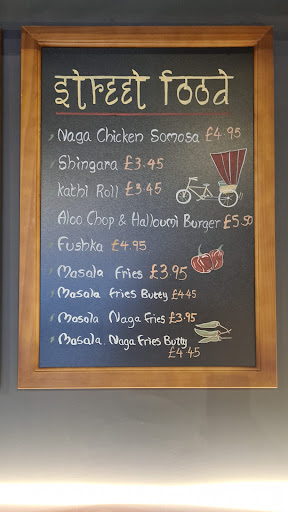 street food
Naga Chicken Somosa £4.95
Shingara £3.45
Kathi Roll £3.45
Aloo Chop & Halloumi Burger £5.50
Fushka £4.95
Masala Fries £3.95
Masala Fries Butty £4.45
Masala Naga Fries £3.95
Masala Naga Fries Butty
£4.45